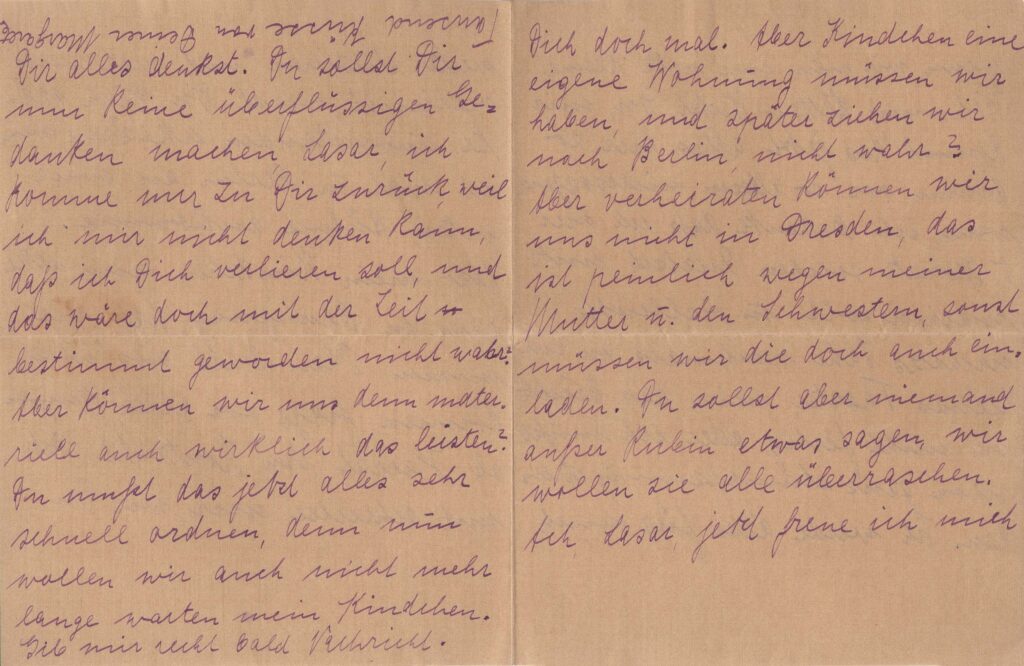 Tausend Küsse von Deiner Margarete
Dir alles denkst. Du sollst Dir
nun keine überflüssigen Ge=
danken machen, Lasar, ich
komme nur zu Dir zurück, weil
ich mir nicht denken kann,
daß ich Dich verlieren soll, und
das wäre doch mit der Zeit
bestimmt geworden nicht wahr?
Aber können wir uns denn mater-
riell auch wirklich das leisten?
Du mußt das jetzt alles sehr
schnell ordnen, denn nun
wollen wir auch nicht mehr
lange warten mein Kindchen.
Gib mir recht bald Nachricht.
Dich doch mal. Aber Kindchen eine
eigene Wohnung müssen wir
haben, und später ziehen wir
nach Berlin, nicht wahr?
Aber verheiraten können wir
uns nicht in Dresden, das
ist peinlich wegen meiner
Mutter u. den Schwestern, sonst
müssen wir die doch auch ein-
laden. Du sollst aber niemand
außer Rubin etwas sagen, wir
wollen sie alle überraschen.
Ach, Lasar, jetzt freue ich mich